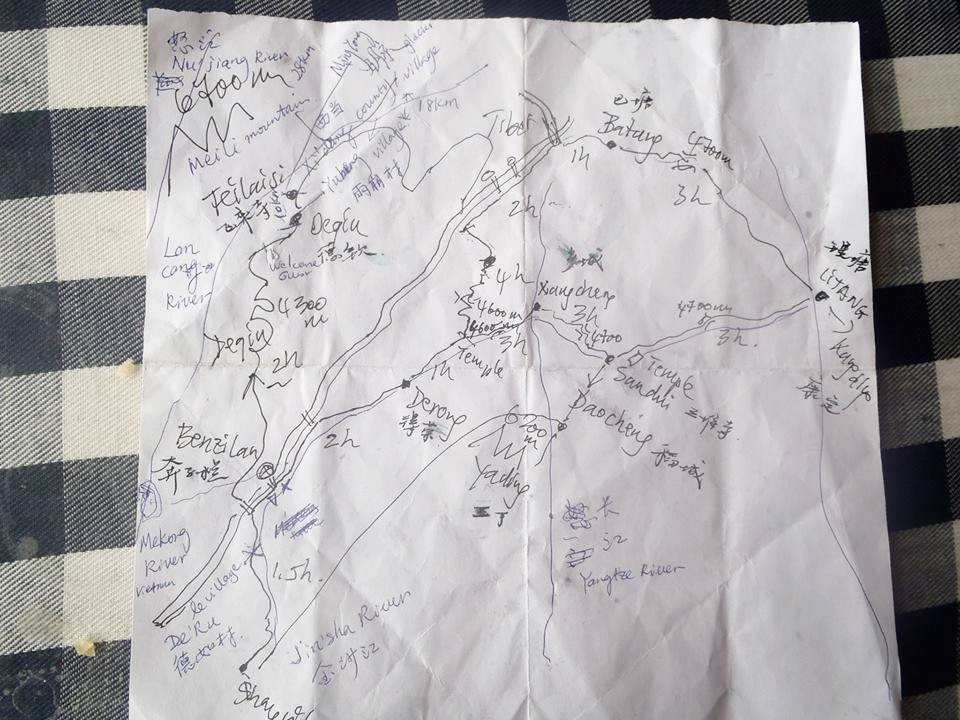 怒江
Nu jiang River
6700m
28km
Meili mountain
Mingyong
glacier
village
18km
西当
Yubeng village
雨崩村
Feilaisi
飞来寺
Deqin
德钦
welcome
Lan
cang
River
4300
m
Deqin
2h
Benzilan
奔子栏
Mekong
River
Vietnam
village
De'Ru
德如村.
1.5h.
Jin'sha River
金沙江
Tibet
1h
巴塘
Batang
4700m
3h
2h
4h
4600m
4600m
3h
Temple
1h
Derong
得荣
2h
Xiangcheng
3h
4700
Temple
Sandui
Daocheng
稻城
4700m
3h.
LiTANG
Kangding
康定
6700
m
Yading
丁
长
江
Yangtze River